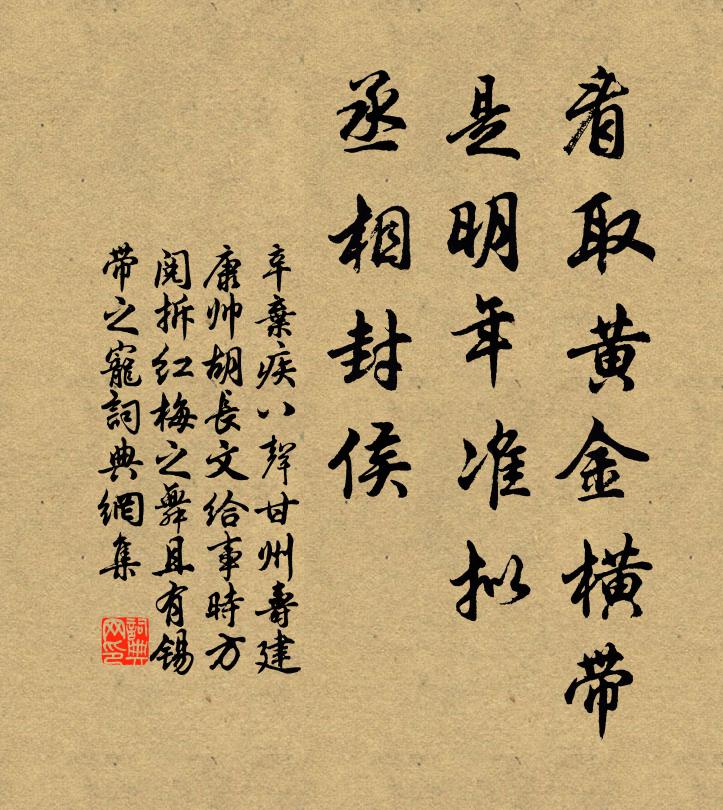 看取黄金横带
是明年准拟
丞相封侯
辛棄疾八聲甘州壽建
康帅胡長文給事時方
閱拆红梅之舞且有锡
带之寵詞典網集
詞典网印